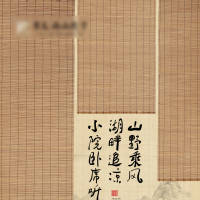 山野乘风
湖畔追凉
小院卧席听